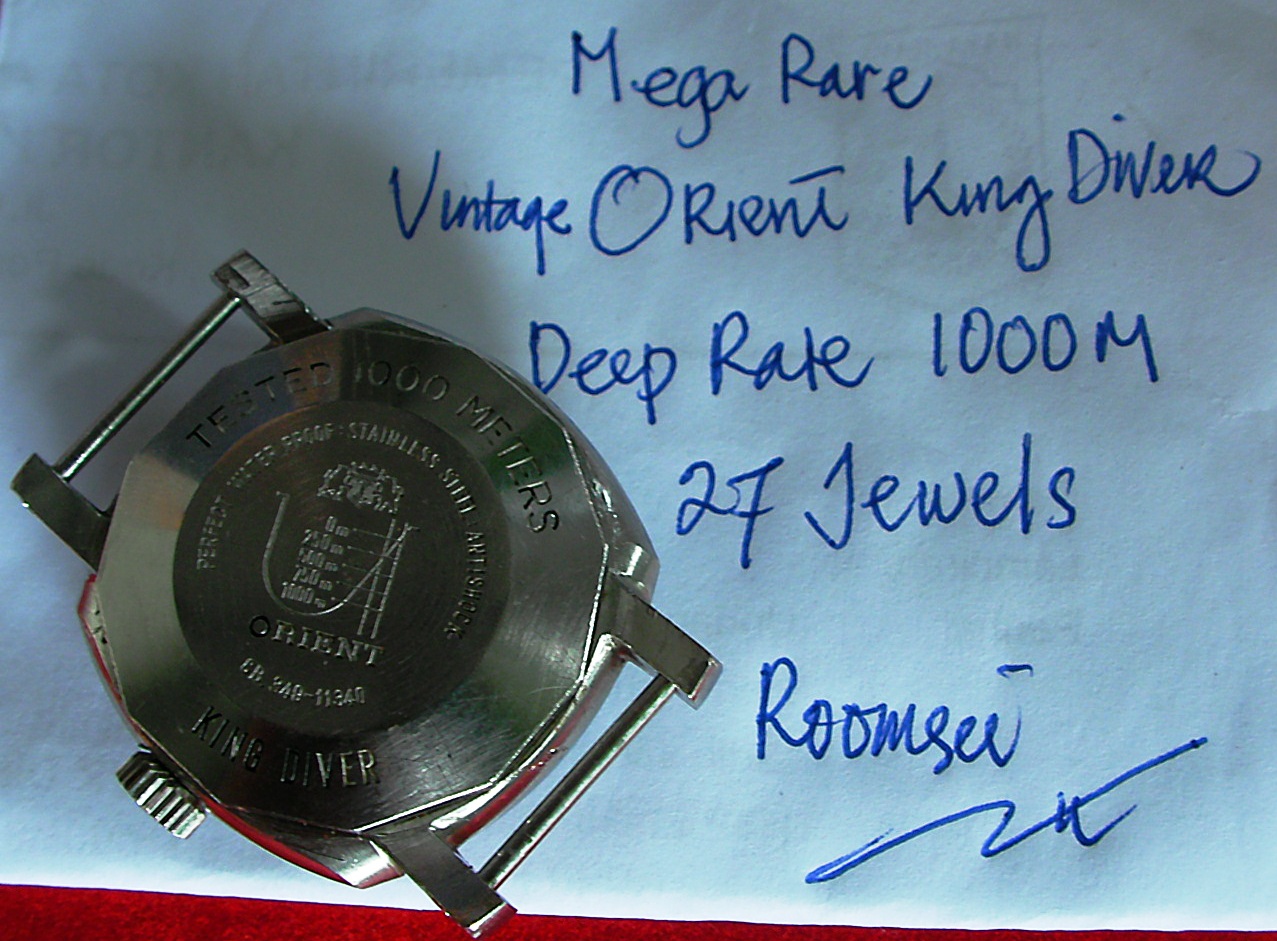 Mega Rare
Vintage ORient King Diver
Deep Rate 1000M
27 Jewels
TESTED 1000 METERS
PERFECT WATER PROOF · STAINLESS STEEL · ANTISHOCK
0m
250m
500m
750m
1000m
ORIENT
KING DIVER